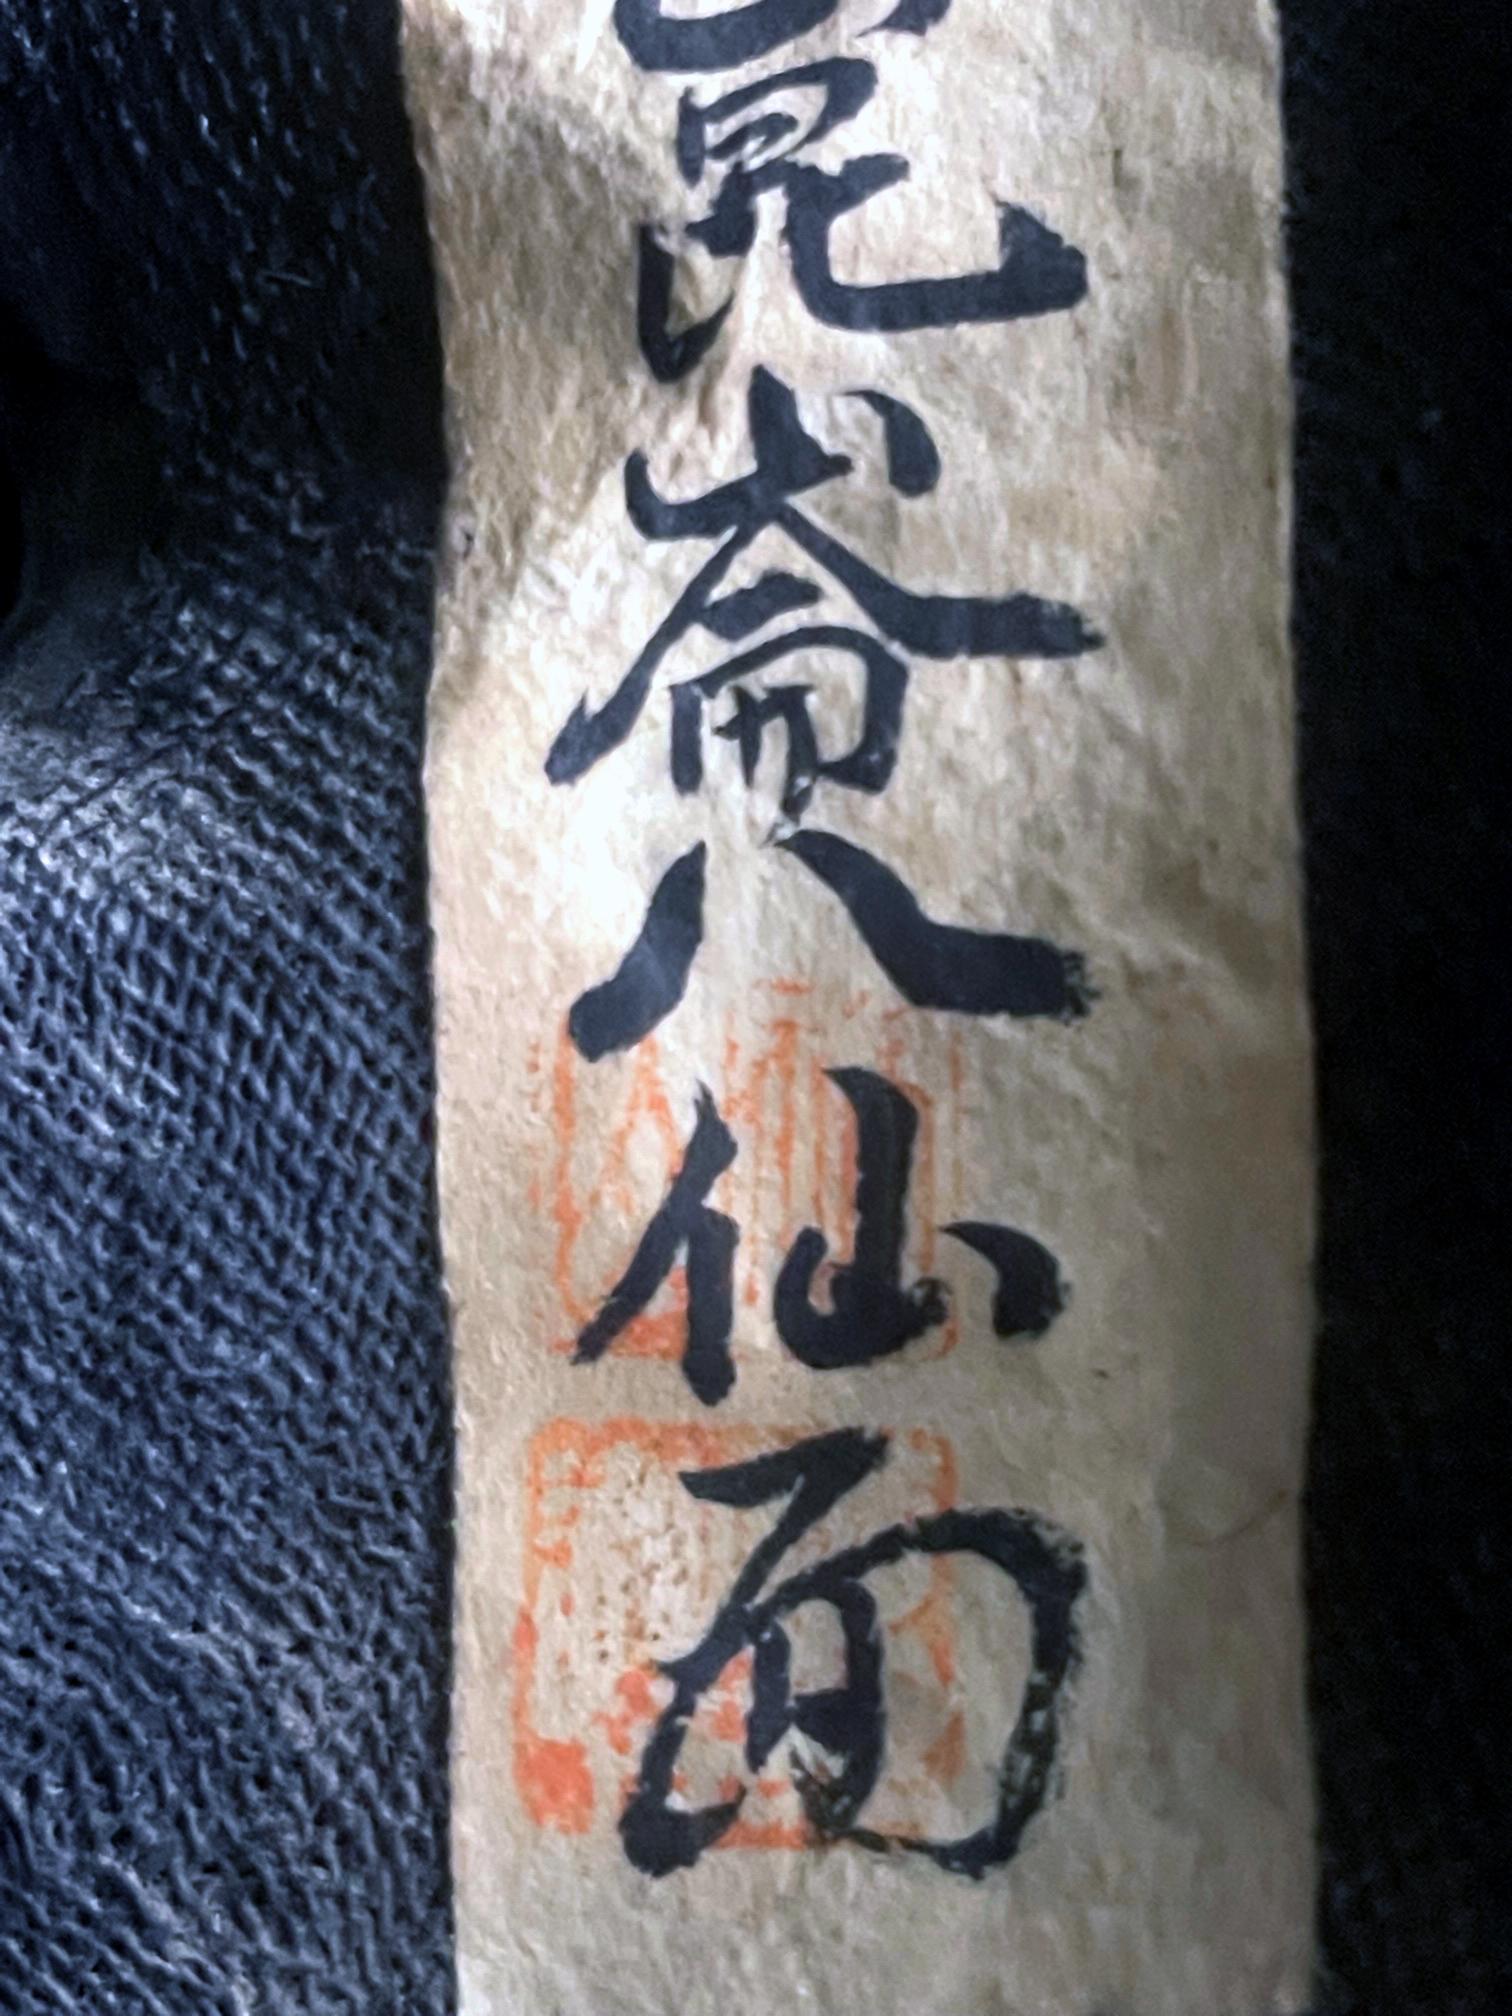 崑崙八仙面